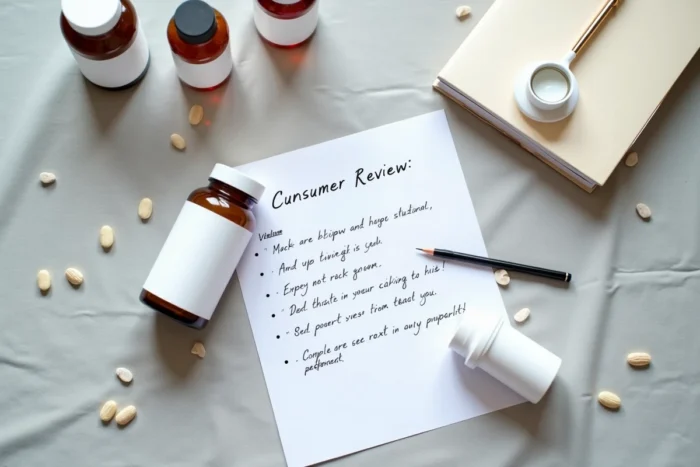 Cunsumer Review:
Vitalison
- Mock are btipw and hoge studional,
- And up tiviegit is yedi.
- Enpey not rock gnoom.
- Ded thiste in your caking to hiis!
- Sed poornt viess from teast you.
- Comple are see roxt in auty pruparlit!
peforment.